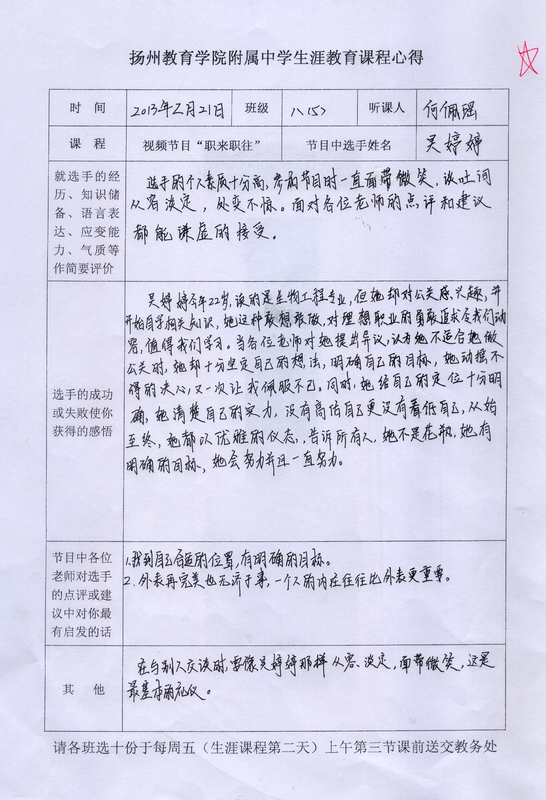 扬州教育学院附属中学生涯教育课程心得
时 间 2013年2月21日 班级 八(5) 听课人 何佩瑶
课 程 视频节目“职来职往” 节目中选手姓名 吴婷婷
就选手的经
历、知识储
备、语言表
达、应变能
力、气质等
作简要评价
选手的个人素质十分高，参加节目时一直面带微笑，谈吐间
从容淡定，处变不惊。面对各位老师的点评和建议
都能谦虚的接受。
选手的成功
或失败使你
获得的感悟
吴婷婷今年22岁，读的是生物工程专业，但她却对公关感兴趣，并
开始自学相关知识，她这种敢想敢做，对理想职业的勇敢追求令我们动
容，值得我们学习。当各位老师对她提出异议，认为她不适合她做
公关时，她却十分坚定自己的想法，明确自己的目标，她动摇不
得的决心，又一次让我佩服不已，同时，她给自己的定位十分明
确，她清楚自己的实力，没有高估自己更没有看低自己，从始
至终，她都以优雅的仪态，告诉所有人，她不是花瓶，她有
明确的目标，她会努力并且一直努力。
节目中各位
老师对选手
的点评或建
议中对你最
有启发的话
1.找到自己合适的位置，有明确的目标。
2.外表再完美也无济于事，一个人的内在往往比外表更重要。
其 他
在与别人交谈时，要像吴婷婷那样从容、淡定，面带微笑，这是
最基本的礼仪。
请各班选十份于每周五（生涯课程第二天）上午第三节课前送交教务处